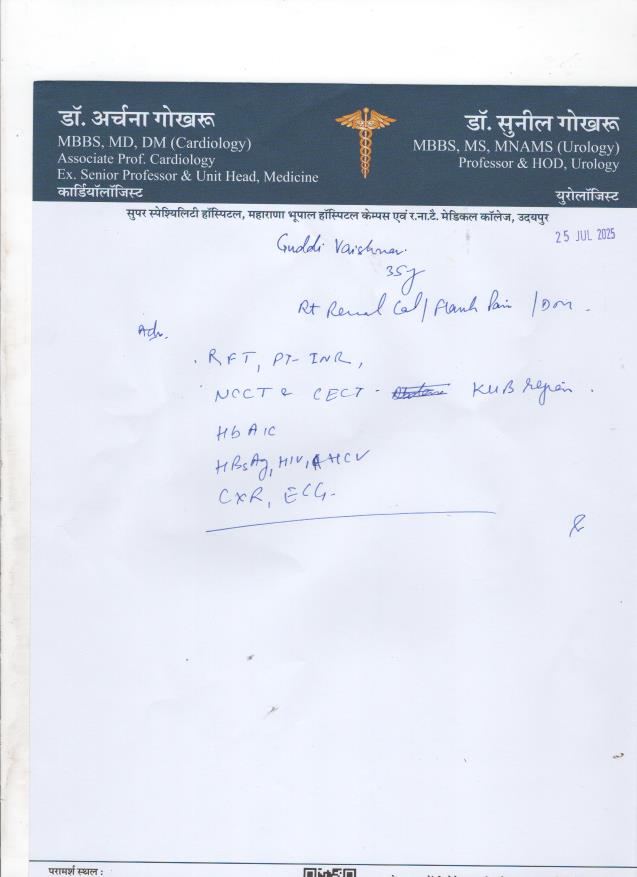 डॉ. अर्चना गोखरू
MBBS, MD, DM (Cardiology)
Associate Prof. Cardiology
Ex. Senior Professor & Unit Head, Medicine
कार्डियॉलॉजिस्ट
डॉ. सुनील गोखरू
MBBS, MS, MNAMS (Urology)
Professor & HOD, Urology
युरोलॉजिस्ट
सुपर स्पेश्यिलिटी हॉस्पिटल, महाराणा भूपाल हॉस्पिटल केम्पस एवं र.ना.टै. मेडिकल कॉलेज, उदयपुर
25 JUL 2025
Guddi Vaishnav
35y
Rt Renal Cal / Flank Pain / DM
Adv.
RFT, PT-INR,
NCCT & CECT - KUB region.
HbA1C
HBsAg, HIV, HCV
CXR, ECG.
परामर्श स्थल :